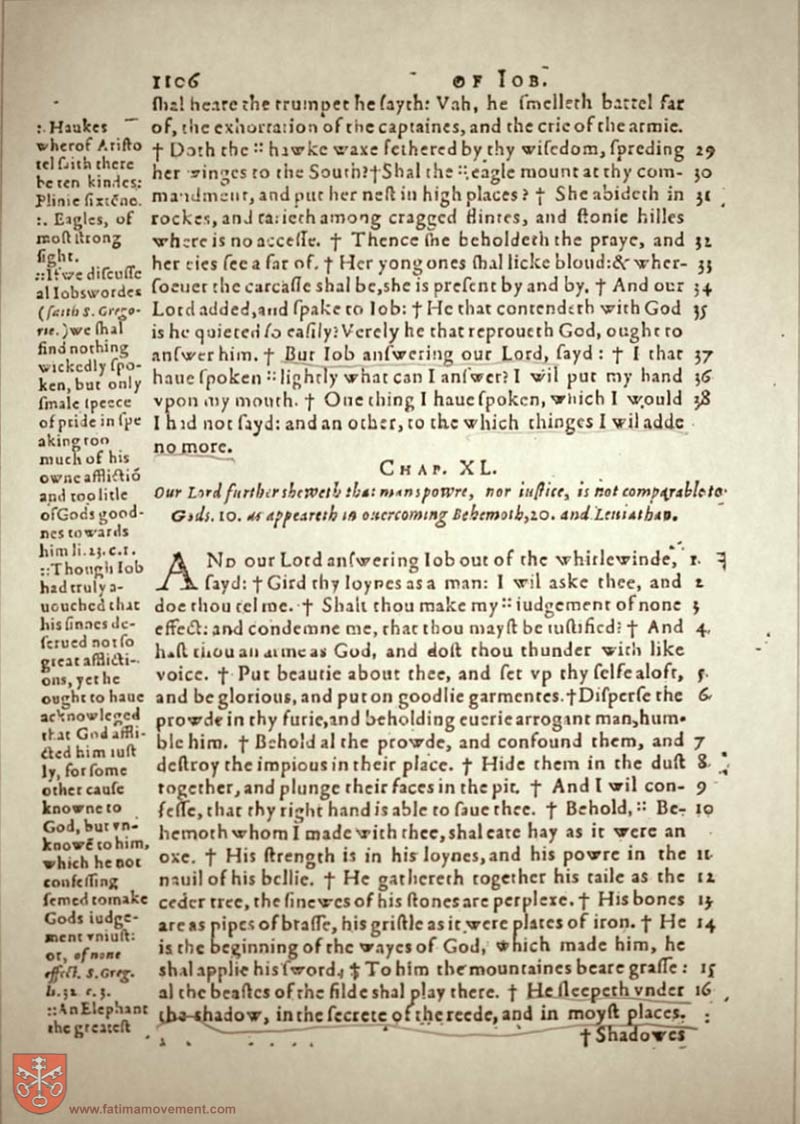 1106 OF IOB.
shal heare the trumpet he sayth: Vah, he smelleth battel far
of, the exhortation of the captaines, and the crie of the armie.
† Doth the :: hawke waxe fethered by thy wisedom, spreding 29
her winges to the South? † Shal the :: eagle mount at thy com- 30
mandment, and put her nest in high places? † She abideth in 31
rockes, and tarieth among cragged flintes, and stonie hilles
where is no accesse. † Thence she beholdeth the praye, and 32
her eies see a far of. † Her yong ones shal licke bloud: & wher- 33
soeuer the carcasse shal be, she is present by and by. † And our 34
Lord added, and spake to Iob: † He that contendeth with God 35
is he quieted so easily? Verely he that reproueth God, ought to
answer him. † But Iob answering our Lord, sayd: † I that 37
haue spoken :: lightly what can I answer? I wil put my hand 36
vpon my mouth. † One thing I haue spoken, which I would 38
I had not sayd: and an other, to the which thinges I wil adde
no more.
:. Haukes
wherof Aristo
tel saith there
be ten kindes:
Plinie sixténe.
:. Eagles, of
most strong
sight.
:: If we discusse
al Iobs wordes
(saith S. Grego-
rie.) we shal
find nothing
wickedly spo-
ken, but only
smale speece
of pride in spe
aking too
much of his
owne afflictiō
and too litle
of Gods good-
nes towards
him li. 23. c. 1.
:: Though Iob
had truly a-
uouched that
his sinnes de-
serued not so
great afflicti-
ons, yet he
ought to haue
acknowleged
that God affli-
cted him iust
ly, for some
other cause
knowne to
God, but vn-
knowē to him,
which he not
confessing
semed to make
Gods iudge-
ment vniust:
or, of none
effect. S. Greg.
li. 32 c. 3.
:: An Elephant
the greatest
CHAP. XL.
Our Lord further sheweth that mans powre, nor iustice, is not comparable to
Gods. 10. as appeareth in ouercoming Behemoth, 20. and Leuiathan.
AND our Lord answering Iob out of the whirlewinde, 1.
sayd: † Gird thy loynes as a man: I wil aske thee, and 2
doe thou tel me. † Shalt thou make my :: iudgement of none 3
effect: and condemne me, that thou mayst be iustified? † And 4
hast thou an arme as God, and dost thou thunder with like
voice. † Put beautie about thee, and set vp thy selfe aloft, 5.
and be glorious, and put on goodlie garmentes. † Disperse the 6
prowde in thy furie, and beholding euerie arrogant man, hum-
ble him. † Behold al the prowde, and confound them, and 7
destroy the impious in their place. † Hide them in the dust 8
together, and plunge their faces in the pit. † And I wil con- 9
fesse, that thy right hand is able to saue thee. † Behold, :: Be- 10
hemoth whom I made with thee, shal eate hay as it were an
oxe. † His strength is in his loynes, and his powre in the 11
nauil of his bellie. † He gathereth together his taile as the 12
ceder tree, the sinewes of his stones are perplexe. † His bones 13
are as pipes of brasse, his gristle as it were plates of iron. † He 14
is the beginning of the wayes of God, which made him, he
shal applie his sword. ‡ To him the mountaines beare grasse: 15
al the beastes of the filde shal play there. † He sleepeth vnder 16
the shadow, in the secrete of the reede, and in moyst places.
† Shadowes
www.fatimamovement.com